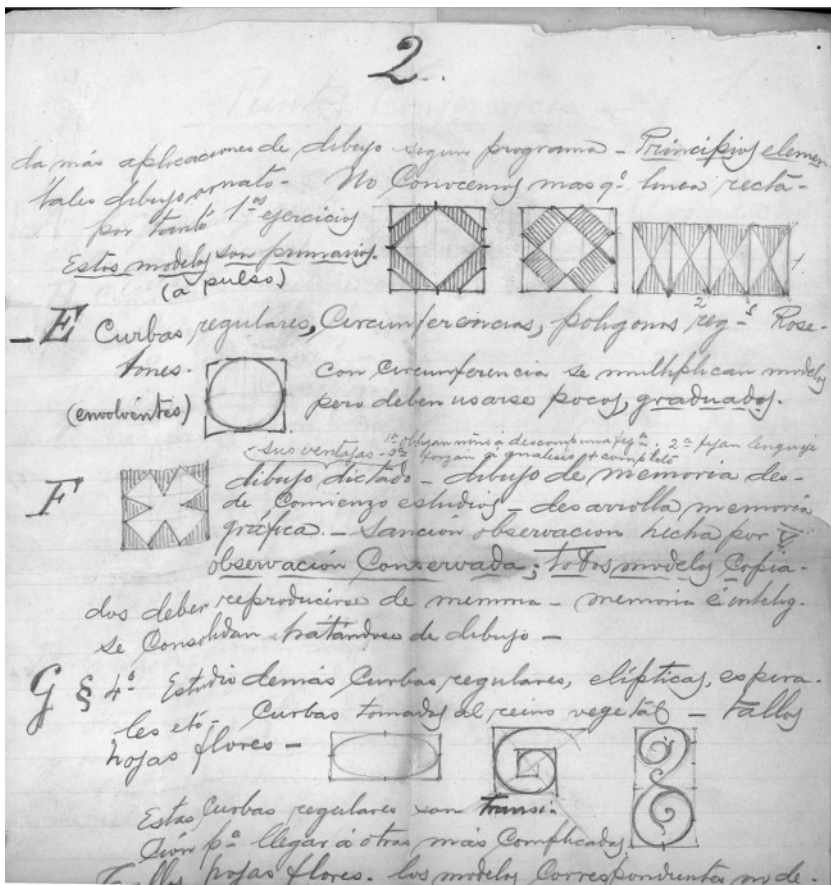 2.
da más aplicaciones de dibujo segun programa - Principios elemen-
tales dibujo ornato - No Conocemos mas qe. linea recta -
por tanto 1os ejercicios
Estos modelos son primarios.
(a pulso)
- E Curbas regulares, Circunferencias, poligonos reg-s Rose-
2
tones.
(envolventes)
con circunferencia se multiplican modelos
pero deben usarse pocos, graduados.
sus ventajas - 1a obligan niños a descomp una fega. 2a fijan lenguaje
3a forzan a analisis + completo
F dibujo dictado - dibujo de memoria des-
de Comienzo estudios - desarrolla memoria
gráfica. - Sanción observacion hecha por
observación Conservada; todos modelos Copia-
dos deben reproducirse de memoria - memoria é intelig.
se Consolidan tratándose de dibujo -
G § 4º Estudio demás Curbas regulares, elípticas, espira-
les etc - Curbas tomadas al reino vegetal - tallos
hojas flores -
Estas Curbas regulares son transi-
ción pa llegar á otras más Complicadas
Tallos hojas flores. los modelos Correspondientes